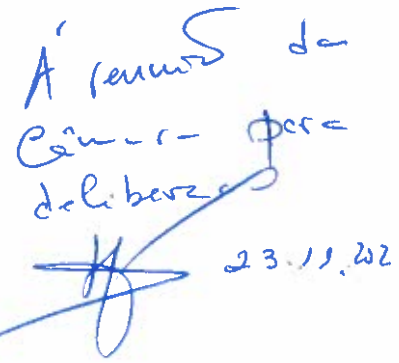 À reunião da
Câmara para
deliberação
23.11.202